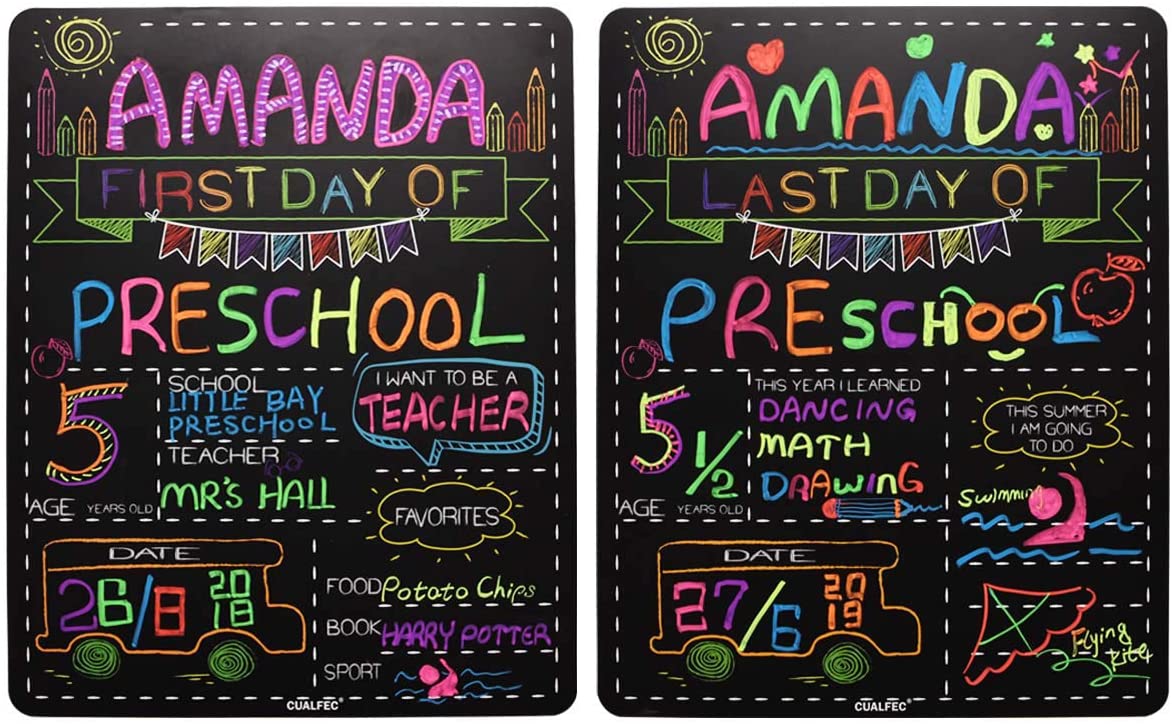 AMANDA
FIRST DAY OF
PRESCHOOL
5
AGE YEARS OLD
SCHOOL
LITTLE BAY
PRESCHOOL
TEACHER
MR'S HALL
I WANT TO BE A
TEACHER
FAVORITES
DATE
26/8 2018
FOOD Potato Chips
BOOK HARRY POTTER
SPORT
CUALFEC®
AMANDA
LAST DAY OF
PRESCHOOL
5 1/2
AGE YEARS OLD
THIS YEAR I LEARNED
DANCING
MATH
DRAWING
THIS SUMMER
I AM GOING
TO DO
Swimming
DATE
27/6 2019
Flying
kite
CUALFEC®